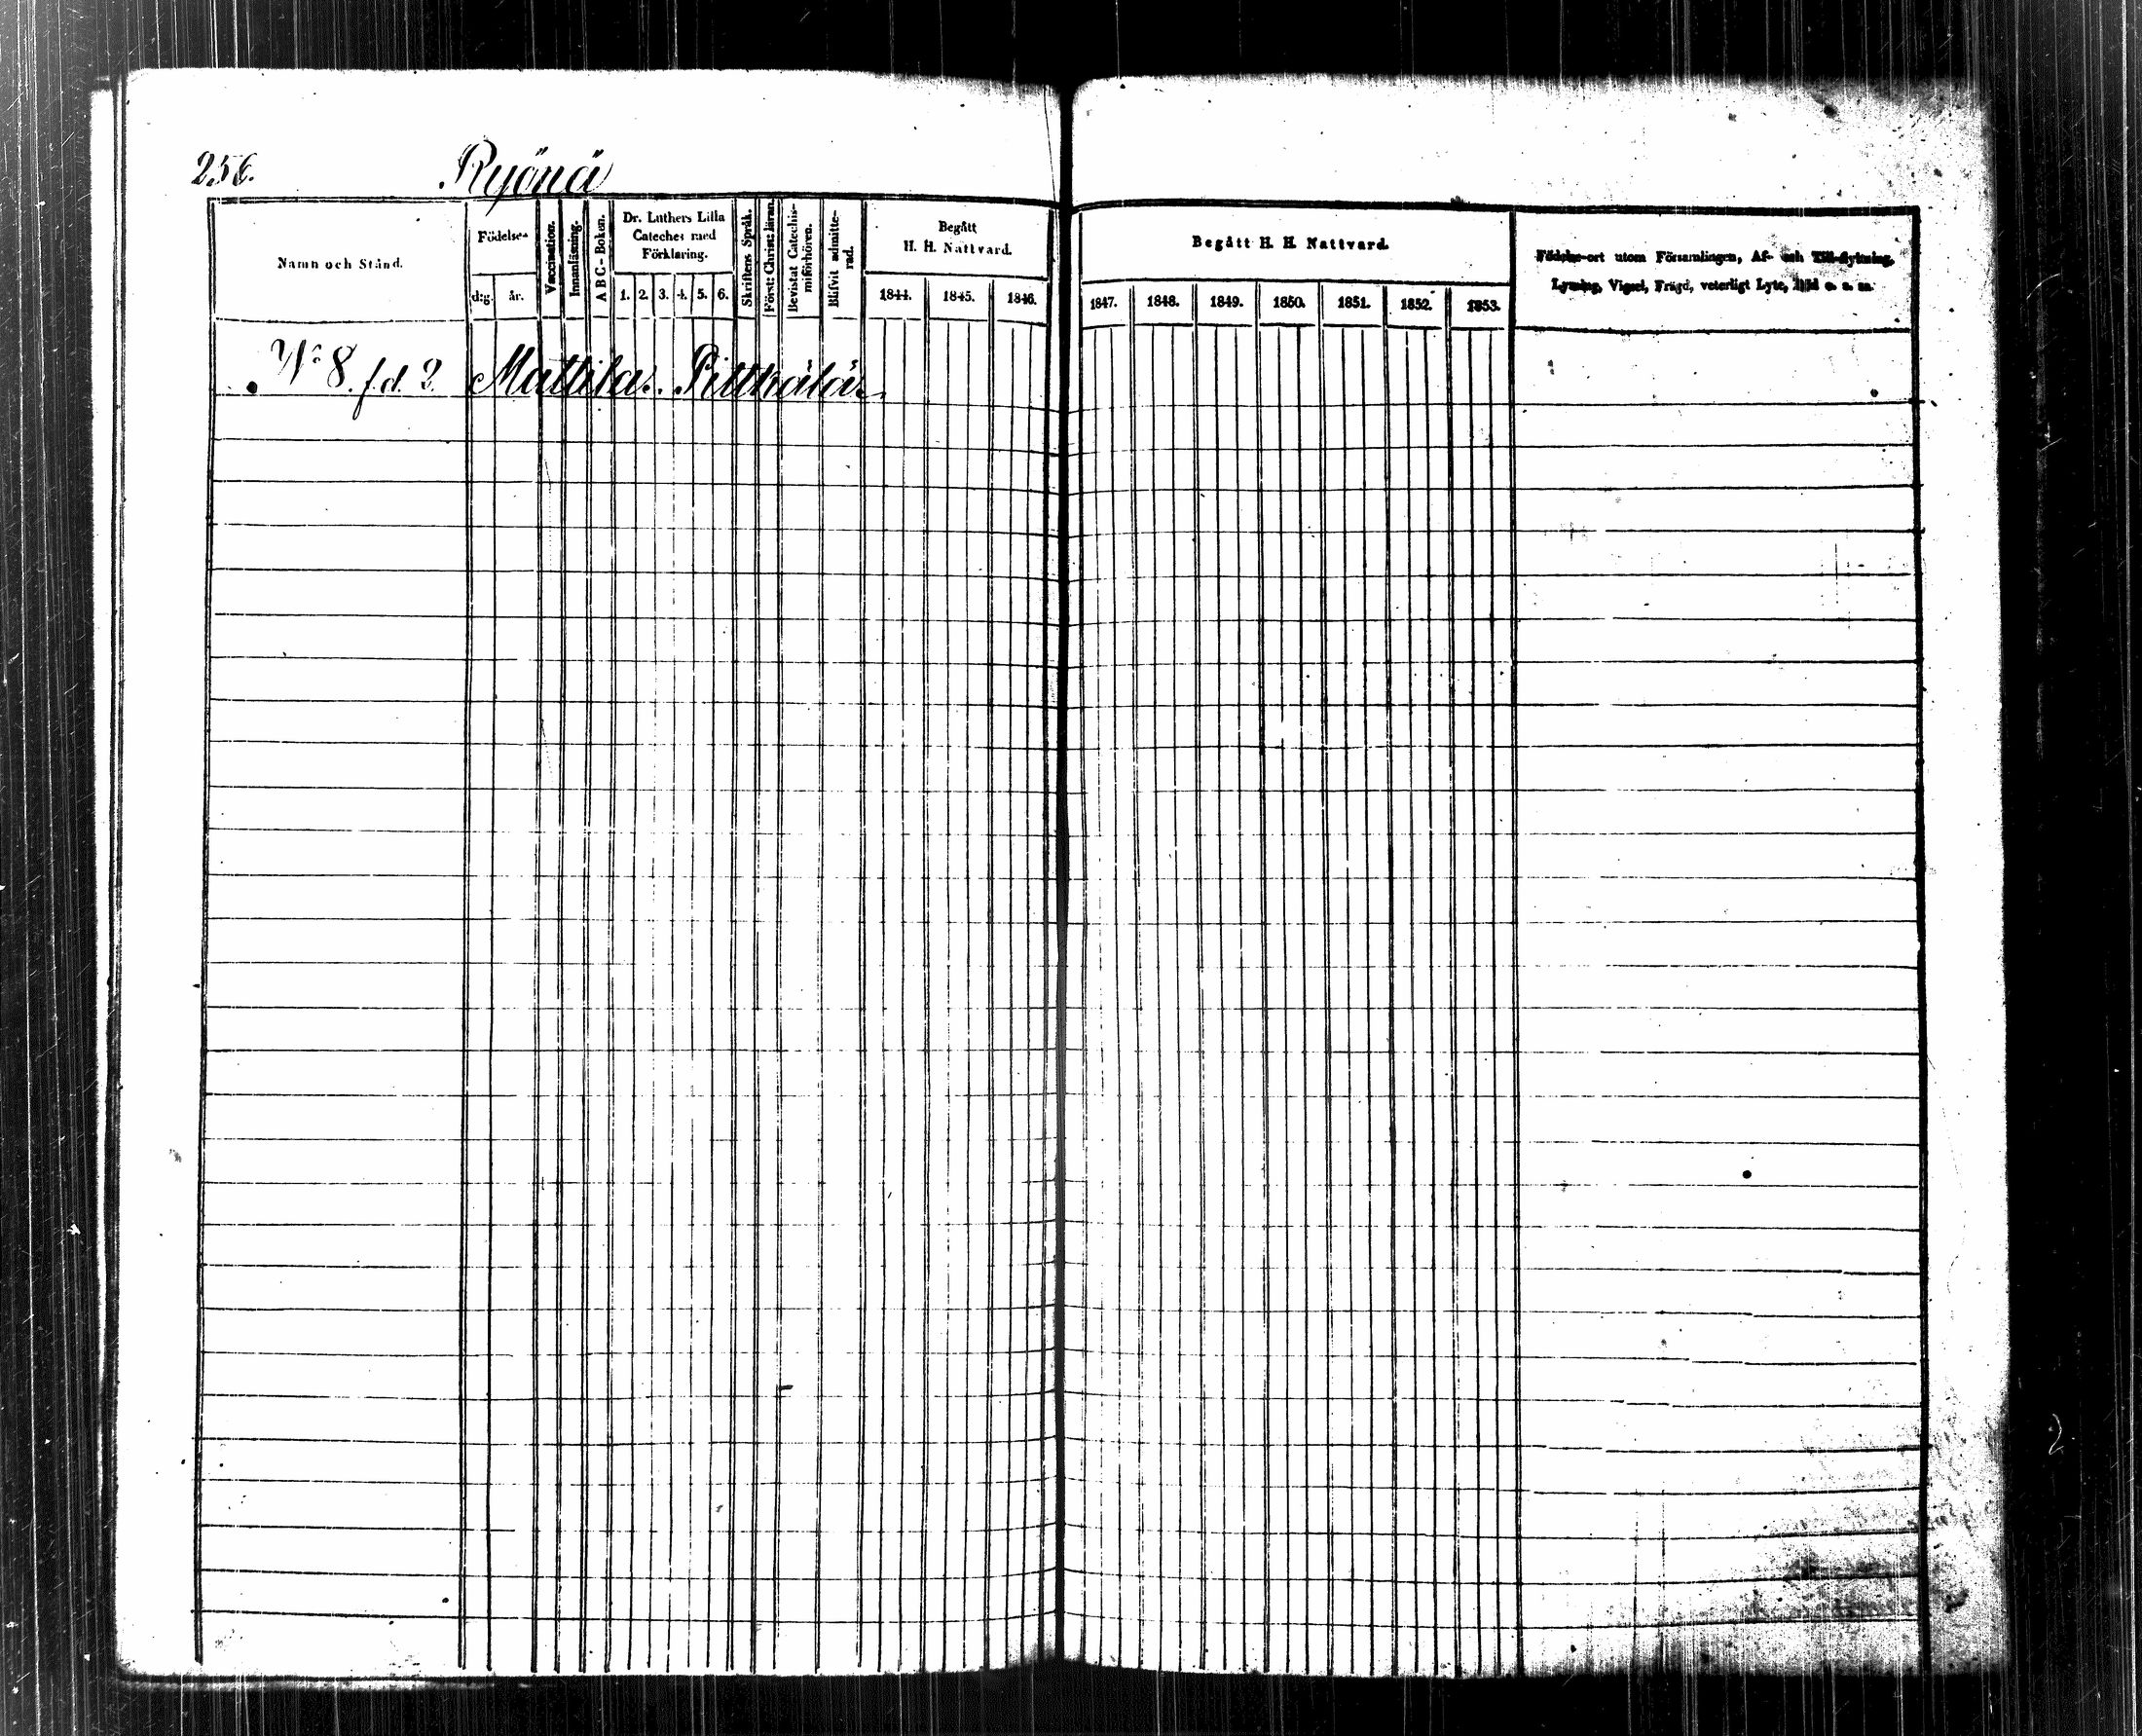 256.
Ryönä
Namn och Stånd.
Födelse-
d:g.
år.
Vaccination.
Innanläsning.
A B C - Boken.
Dr. Luthers Lilla
Cateches med
Förklaring.
1. 2. 3. 4. 5. 6.
Skriftens Språk.
Först: Christ: läran.
Bevistat Catechis-
miförhören.
Blifvit admitte-
rad.
Begått
H. H. Nattvard.
1844. 1845. 1846.
Begått H. H. Nattvard.
1847. 1848. 1849. 1850. 1851. 1852. 1853.
Födelse-ort utom Församlingen, Af- och Till-flyttning,
Lysning, Vigsel, Frägd, veterligt Lyte, Död o. s. m.
No 8. f.d. 2 Mattila. Pitkälä.